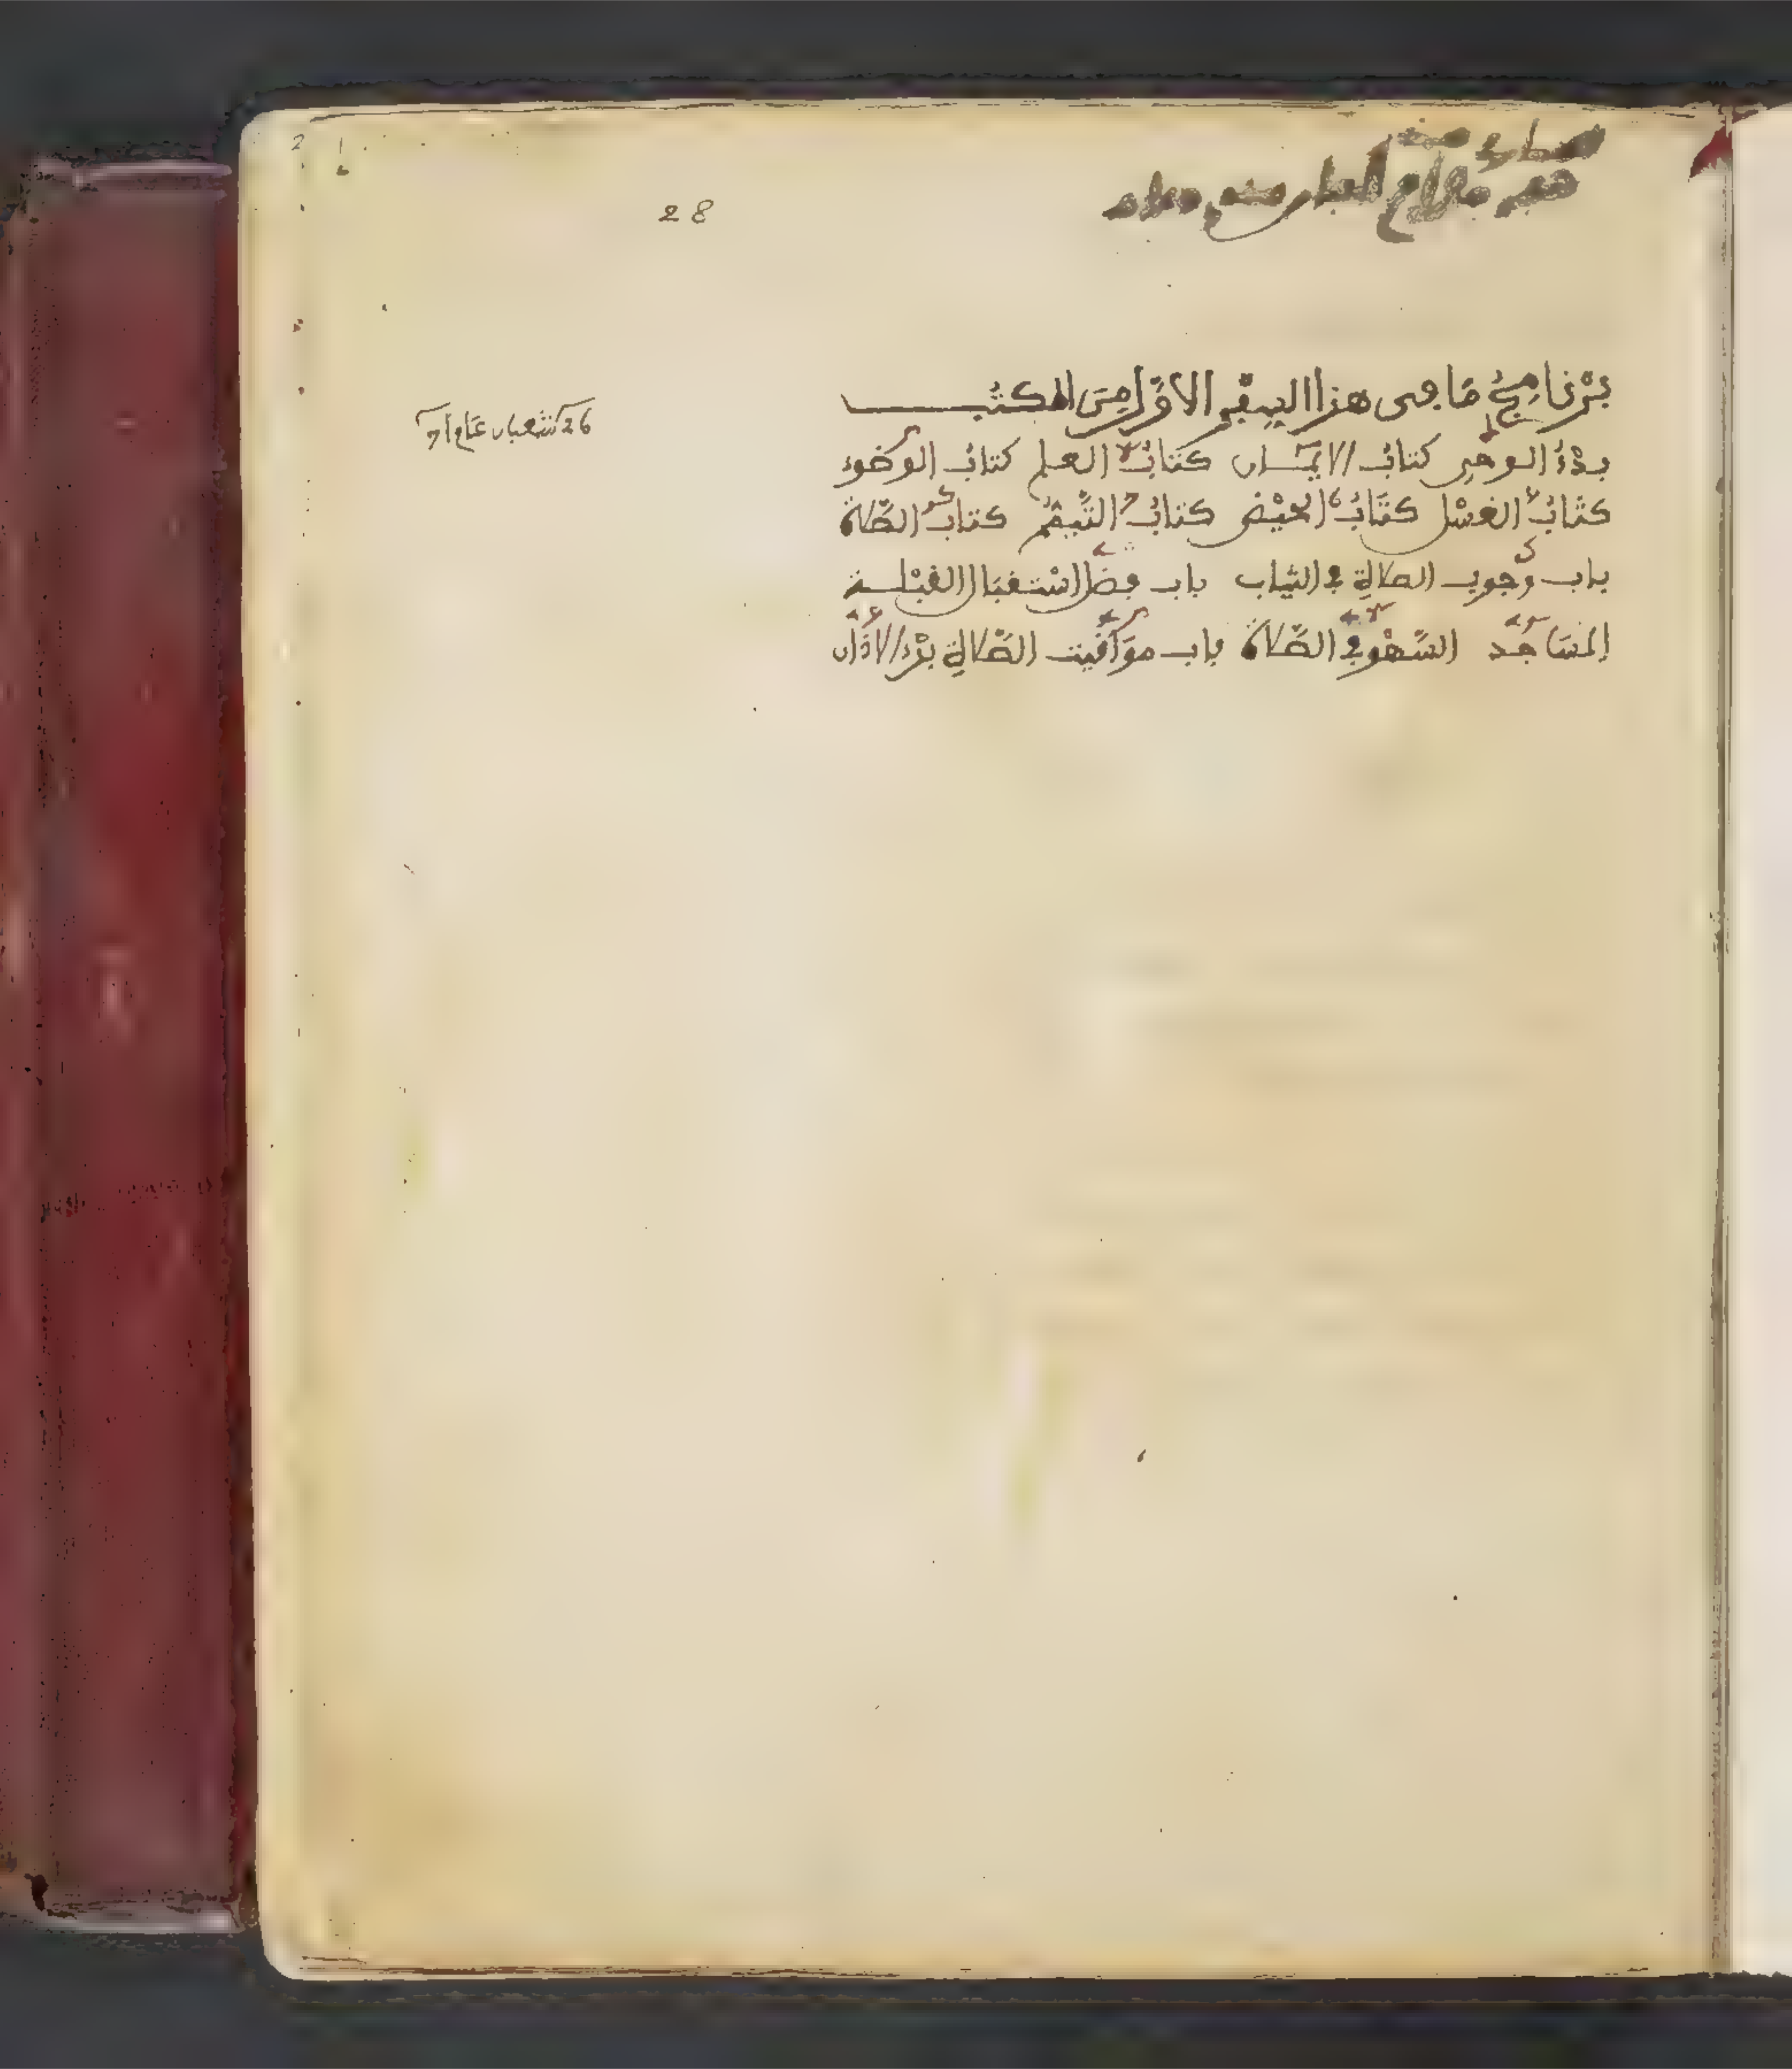 28
بَرْنَامِجُ مَا فِي هذا السِفْرِ الأوّل مِنَ الكُتُب
26 شعبان عام
بدْءُ الوحي كتابُ الايمَان كتابُ العلم كتابُ الوضوء
كتابُ الغسْل كتَابُ الحيْض كتابُ التَّيمّم كتابُ الصَّلاة
باب وُجوب الصلاةِ في الثياب باب فضل اسْتقبَال القبْلة
المسَاجد السَّهْو في الصَّلاة باب مَوَاقيت الصَّلاةِ بدْء الأذَان